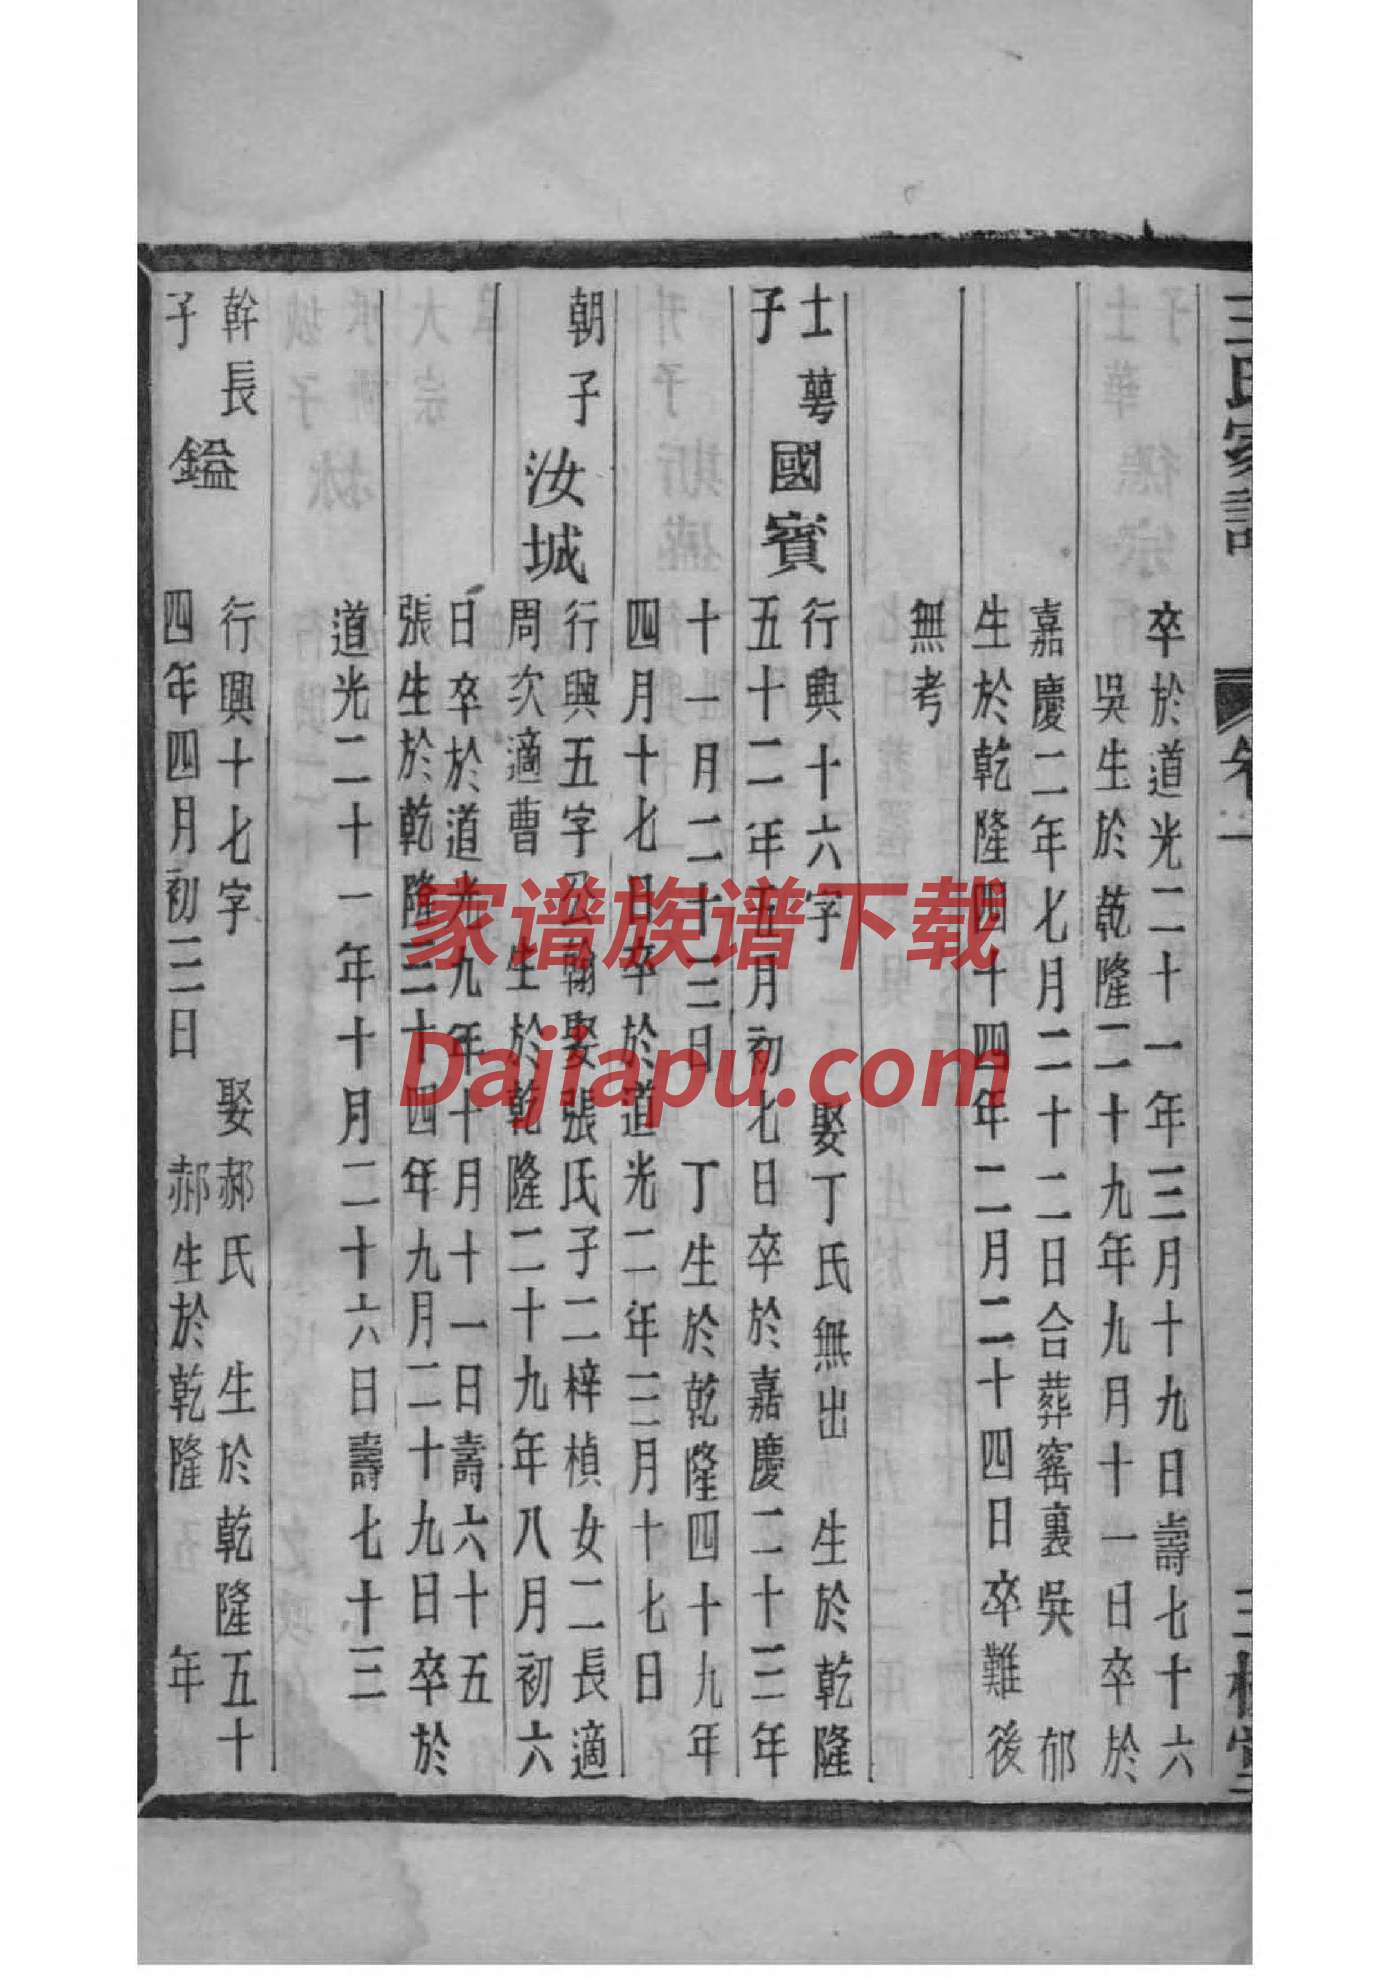 王氏家譜
卷一
三槐堂
卒於道光二十一年三月十九日壽七十六
吳生於乾隆二十九年九月十一日卒於
嘉慶二年七月二十二日合葬窰裏吳　郁
生於乾隆四十四年二月二十四日卒難後
無考
士蕚
子
國賓
行興十六字　娶丁氏無出　生於乾隆
五十二年五月初七日卒於嘉慶二十三年
十一月二十三日　丁生於乾隆四十九年
四月十七日卒於道光二年三月十七日
朝子
汝城
行興五字公翰娶張氏子二梓楨女二長適
周次適曹　生於乾隆二十九年八月初六
日卒於道光九年十月十一日壽六十五
張生於乾隆三十四年九月二十九日卒於
道光二十一年十月二十六日壽七十三
幹長
子
鎰
行興十七字　娶郝氏　生於乾隆五十
四年四月初三日　郝生於乾隆　年
家谱族谱下载
Dajiapu.com